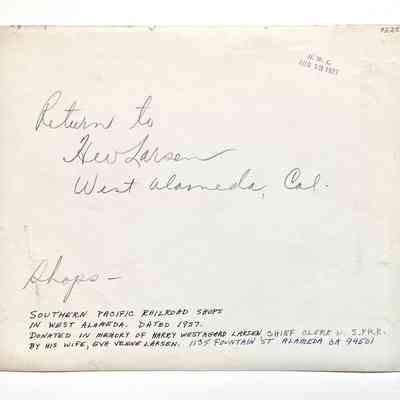 H. W. L.
AUG 18 1927
Return to
Hew Larsen
West Alameda, Cal.
Shops -
SOUTHERN PACIFIC RAILROAD SHOPS
IN WEST ALAMEDA. DATED 1927.
DONATED IN MEMORY OF HARRY WESTAGARD LARSEN CHIEF CLERK S.P.R.R.
BY HIS WIFE, EVA VERNE LARSEN. 1135 FOUNTAIN ST ALAMEDA CA 94501